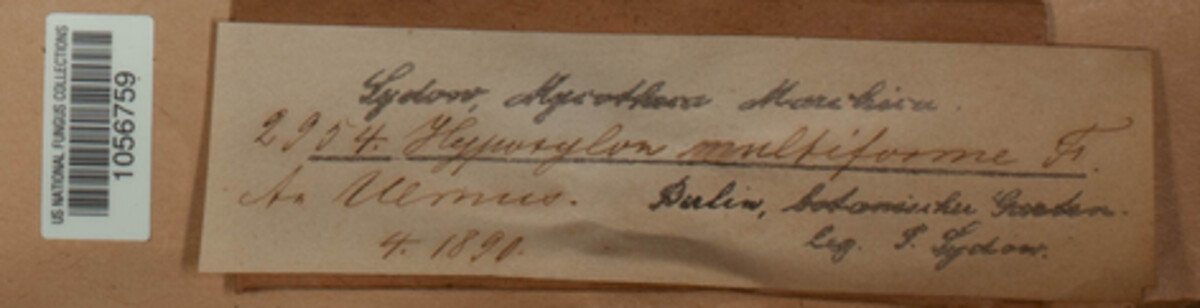 US NATIONAL FUNGUS COLLECTIONS
1056759
Sydow, Mycotheca Marchica.
2954. Hypoxylon multiforme Fr.
An Ulmus. Berlin, botanischer Garten.
4. 1890. leg. P. Sydow.